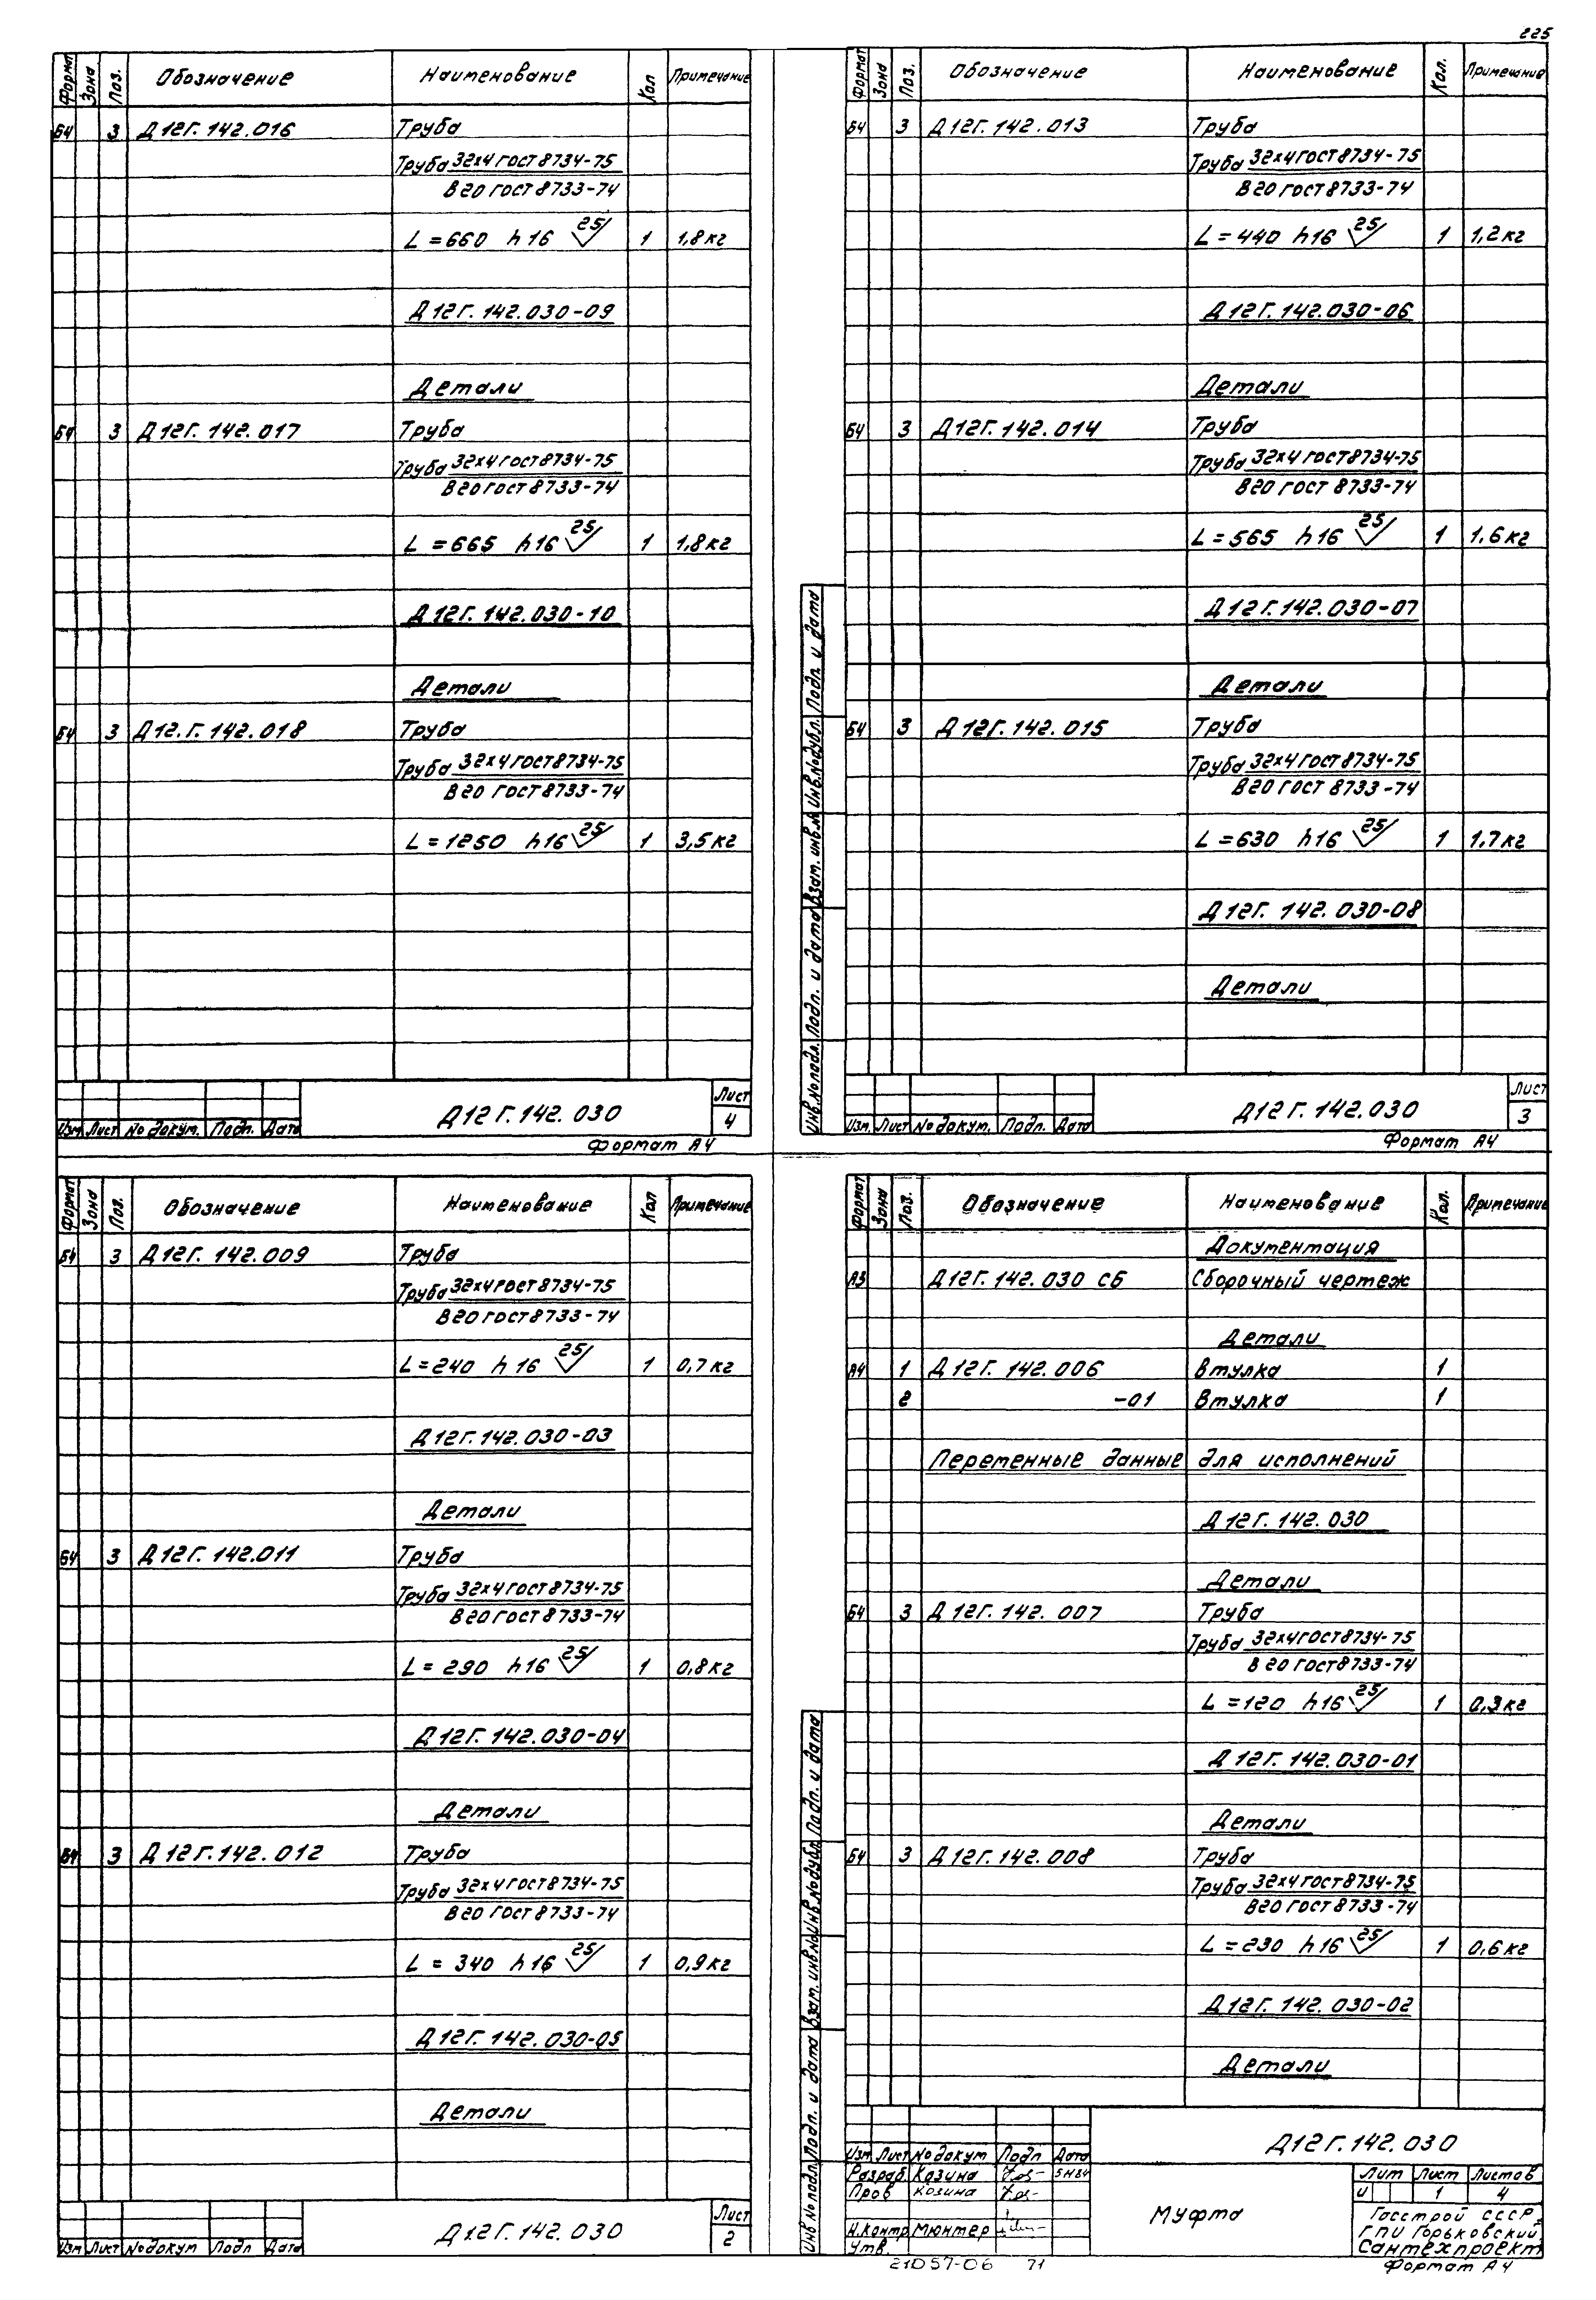 225
Формат Зона Поз. Обозначение Наименование Кол Примечание
Б4 3 Д12Г.142.016 Труба
Труба 32х4 ГОСТ 8734-75
В20 ГОСТ 8733-74
L=660 h16 25 1 1,8кг
Д12Г.142.030-09
Детали
Б4 3 Д12Г.142.017 Труба
Труба 32х4 ГОСТ 8734-75
В20 ГОСТ 8733-74
L=665 h16 25 1 1,8кг
Д12Г.142.030-10
Детали
Б4 3 Д12.Г.142.018 Труба
Труба 32х4 ГОСТ 8734-75
В20 ГОСТ 8733-74
L=1250 h16 25 1 3,5кг
Изм Лист № докум. Подп. Дата
Д12Г.142.030
Лист
4
Формат А4
Формат Зона Поз. Обозначение Наименование Кол. Примечание
Б4 3 Д12Г.142.013 Труба
Труба 32х4 ГОСТ 8734-75
В20 ГОСТ 8733-74
L=440 h16 25 1 1,2кг
Д12Г.142.030-06
Детали
Б4 3 Д12Г.142.014 Труба
Труба 32х4 ГОСТ 8734-75
В20 ГОСТ 8733-74
L=565 h16 25 1 1,6кг
Д12Г.142.030-07
Детали
Б4 3 Д12Г.142.015 Труба
Труба 32х4 ГОСТ 8734-75
В20 ГОСТ 8733-74
L=630 h16 25 1 1,7кг
Д12Г.142.030-08
Детали
Инв.№подл. Подп. и дата Взам.инв.№ Инв.№дубл. Подп. и дата
Изм. Лист № докум. Подп. Дата
Д12Г.142.030
Лист
3
Формат А4
Формат Зона Поз. Обозначение Наименование Кол Примечание
Б4 3 Д12Г.142.009 Труба
Труба 32х4 ГОСТ 8734-75
В20 ГОСТ 8733-74
L=240 h16 25 1 0,7кг
Д12Г.142.030-03
Детали
Б4 3 Д12Г.142.011 Труба
Труба 32х4 ГОСТ 8734-75
В20 ГОСТ 8733-74
L=290 h16 25 1 0,8кг
Д12Г.142.030-04
Детали
Б4 3 Д12Г.142.012 Труба
Труба 32х4 ГОСТ 8734-75
В20 ГОСТ 8733-74
L=340 h16 25 1 0,9кг
Д12Г.142.030-05
Детали
Изм Лист № докум Подп Дата
Д12Г.142.030
Лист
2
Формат Зона Поз. Обозначение Наименование Кол. Примечание
Документация
А3 Д12Г.142.030 СБ Сборочный чертеж
Детали
А4 1 Д12Г.142.006 Втулка 1
2 -01 Втулка 1
Переменные данные для исполнений
Д12Г.142.030
Детали
Б4 3 Д12Г.142.007 Труба
Труба 32х4 ГОСТ 8734-75
В20 ГОСТ 8733-74
L=120 h16 25 1 0,3кг
Д12Г.142.030-01
Детали
Б4 3 Д12Г.142.008 Труба
Труба 32х4 ГОСТ 8734-75
В20 ГОСТ 8733-74
L=230 h16 25 1 0,6кг
Д12Г.142.030-02
Детали
Инв №подл. Подп. и дата Взам.инв.№ Инв.№дубл. Подп. и дата
Д12Г.142.030
Изм Лист № докум Подп Дата
Разраб Козина
Пров Козина
Н.контр Мюнтер
Утв.
Муфта
Лит Лист Листов
И 1 4
Госстрой СССР
ГПИ Горьковский
Сантехпроект
21057-06 71
Формат А4